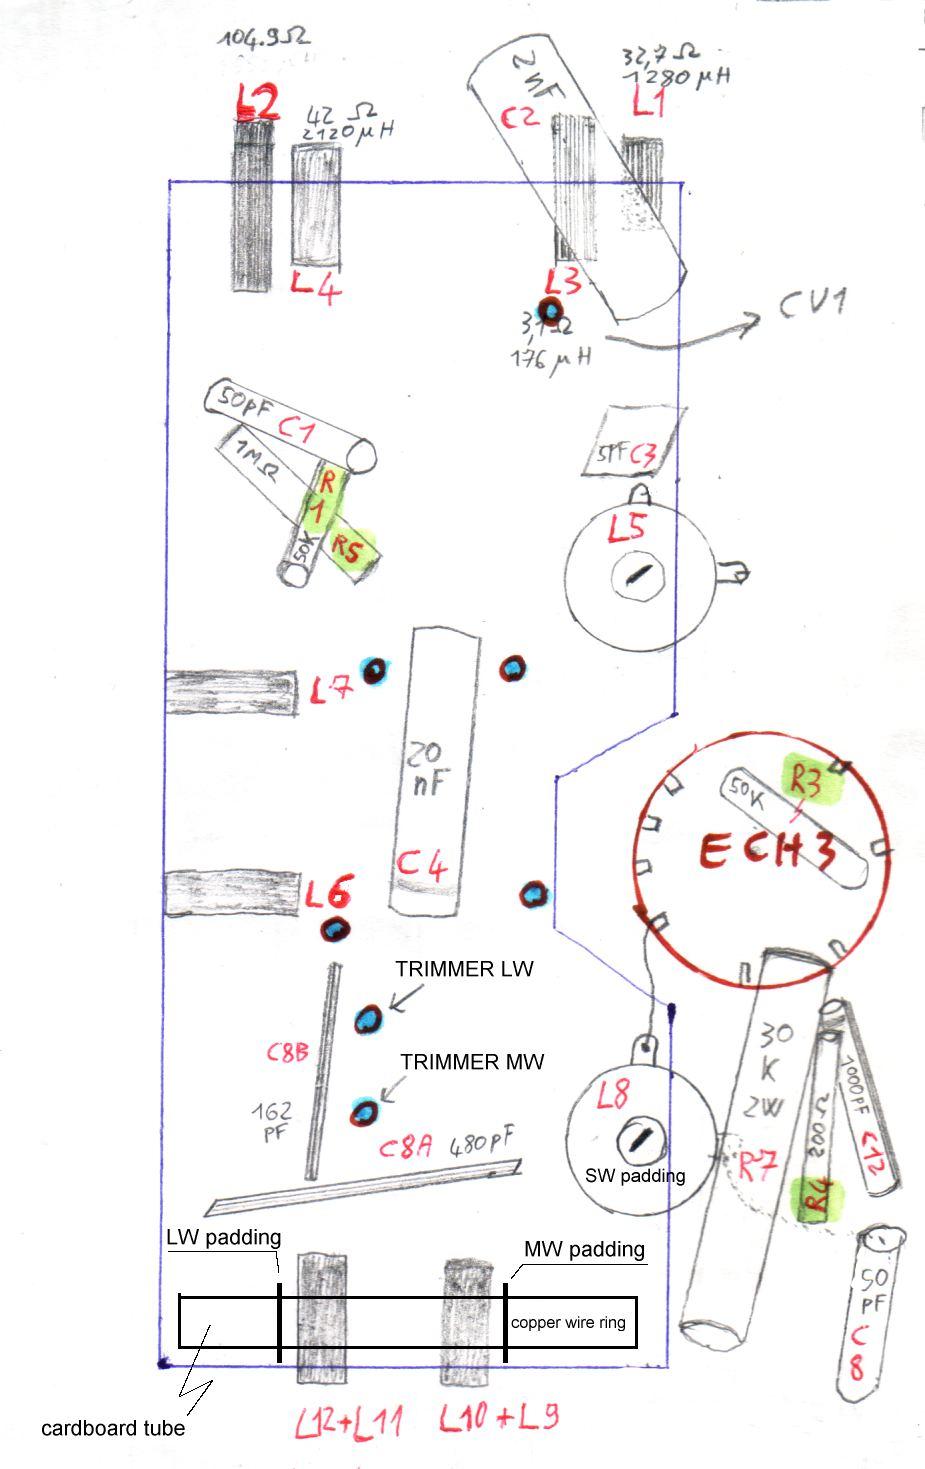 104.9Ω
L2
42 Ω
2120μH
L4
2nF
C2
32,7Ω
1280μH
L1
L3
3,1Ω
176μH
CV1
50pF C1
1MΩ
R
1
50K
R5
5PF C3
L5
L7
20
nF
C4
R3
50K
ECH3
L6
TRIMMER LW
C8B
TRIMMER MW
162
PF
C8A 480pF
L8
SW padding
30
K
2W
R7
200Ω
R4
1000PF
C12
50
pF
C
8
LW padding
MW padding
copper wire ring
cardboard tube
L12+L11
L10+L9